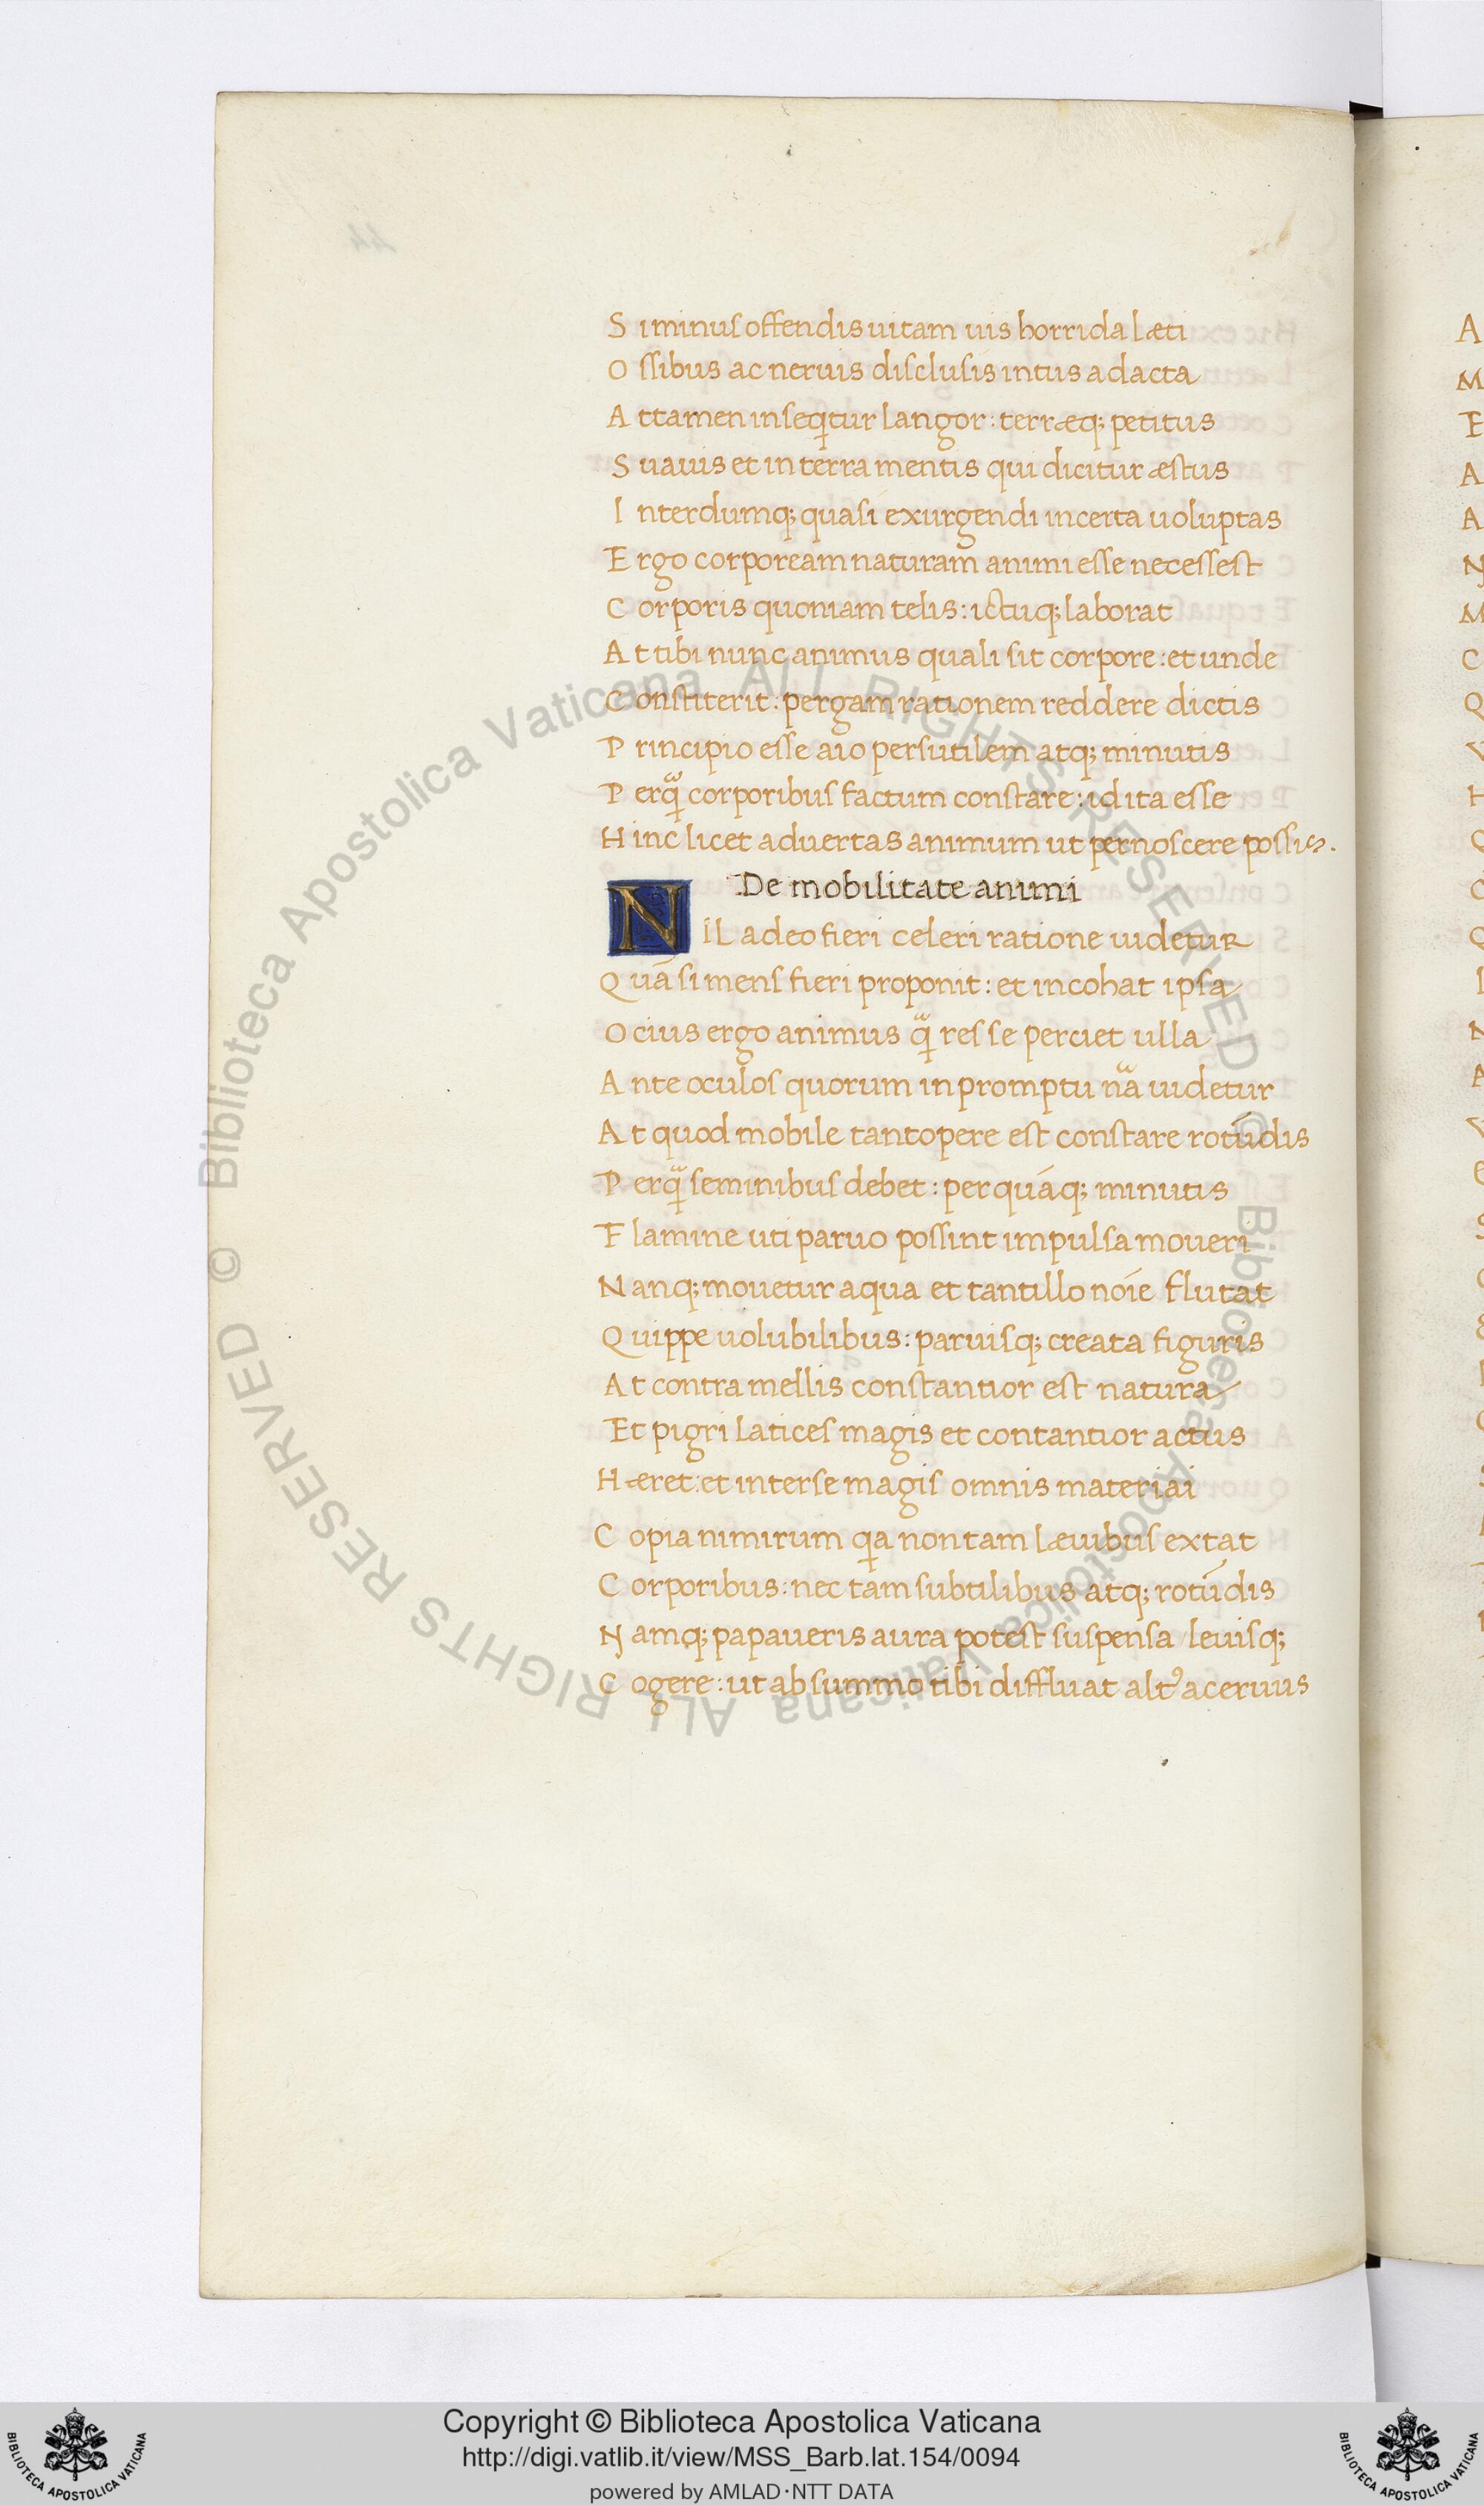 S i minuſ offendis uitam uis horrida læti
O ſſibus ac neruis diſcluſis intus adacta
A ttamen inſeq̇tur langor: terræq; petitus
S uauis et in terra mentis qui dicitur æſtus
I nterdumq; quaſi exurgendi incerta uoluptas
E rgo corpoream naturam animi eſſe neceſſeſt
C orporis quoniam telis: ictuq; laborat
A t tibi nunc animus quali ſit corpore: et unde
C onſtiterit: pergam rationem reddere dictis
P rincipio eſſe aio perſutilem atq; minutis
P erq̃ corporibuſ factum conſtare: id ita eſſe
H inc licet aduertas animum ut pernoſcere poſſis.
De mobilitate animi
N IL adeo fieri celeri ratione uidetur
Q uā ſi menſ fieri proponit: et incohat ipſa
O cius ergo animus q̃ reſ ſe perciet ulla
A nte oculoſ quorum in promptu nā uidetur
A t quod mobile tantopere eſt conſtare rotūdis
P erq̃ ſeminibuſ debet: perquāq; minutis
F lamine uti paruo poſſint impulſa moueri
N anq; mouetur aqua et tantillo noīe flutat
Q uippe uolubilibus: paruiſq; creata figuris
A t contra mellis conſtantior eſt natura
Et pigri laticeſ magis et contantior actus
H æret: et inter ſe magiſ omnis materiai
C opia nimirum qa non tam læuibuſ extat
C orporibus: nec tam ſubtilibus atq; rotūdis
N amq; papaueris aura poteſt ſuſpenſa leuiſq;
C ogere: ut ab ſummo tibi diffluat altꝰ aceruus
A
M
F
A
A
N
M
C
Q
Copyright © Biblioteca Apostolica Vaticana
http://digi.vatlib.it/view/MSS_Barb.lat.154/0094
powered by AMLAD·NTT DATA
BIBLIOTECA APOSTOLICA VATICANA
BIBLIOTECA APOSTOLICA VATICANA
© Biblioteca Apostolica Vaticana ALL RIGHTS RESERVED
© Biblioteca Apostolica Vaticana ALL RIGHTS RESERVED